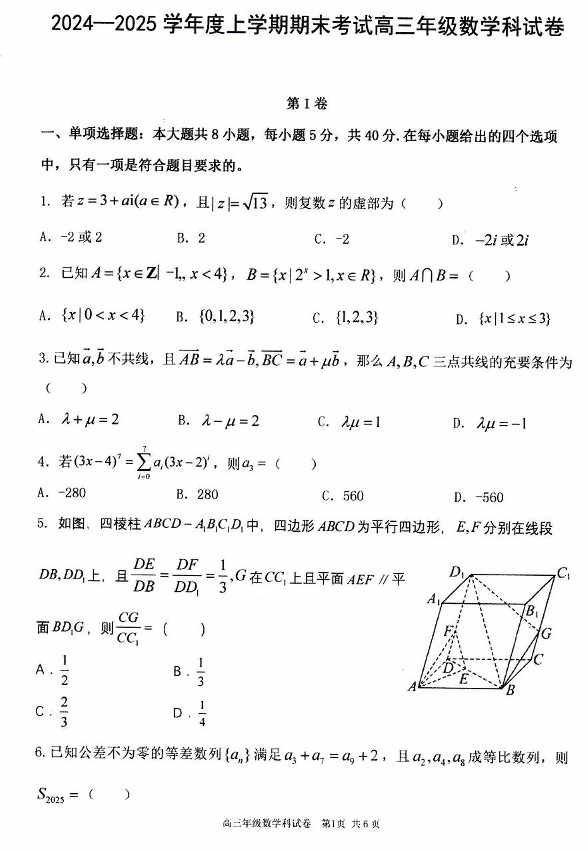 2024—2025 学年度上学期期末考试高三年级数学科试卷
第 I 卷
一、单项选择题：本大题共 8 小题，每小题 5 分，共 40 分. 在每小题给出的四个选项
中，只有一项是符合题目要求的。
1. 若 z = 3 + ai(a ∈ R)，且| z |= √13，则复数 z 的虚部为（ ）
A. -2 或 2 B. 2 C. -2 D. -2i 或 2i
2. 已知 A = {x ∈ Z| -1,, x < 4}，B = {x | 2^x > 1, x ∈ R}，则 A⋂B =（ ）
A. {x | 0 < x < 4} B. {0,1,2,3} C. {1,2,3} D. {x | 1 ≤ x ≤ 3}
3. 已知 a⃗, b⃗ 不共线，且 AB⃗ = λa⃗ − b⃗, BC⃗ = a⃗ + μb⃗，那么 A, B, C 三点共线的充要条件为
（ ）
A. λ + μ = 2 B. λ − μ = 2 C. λμ = 1 D. λμ = −1
4. 若 (3x − 4)^7 = ∑_{i=0}^{7} a_i (3x − 2)^i，则 a₃ =（ ）
A. -280 B. 280 C. 560 D. -560
5. 如图，四棱柱 ABCD − A₁B₁C₁D₁ 中，四边形 ABCD 为平行四边形，E, F 分别在线段
DB, DD₁ 上，且 DE/DB = DF/DD₁ = 1/3, G 在 CC₁ 上且平面 AEF // 平
面 BD₁G，则 CG/CC₁ =（ ）
A. 1/2 B. 1/3
C. 2/3 D. 1/4
D₁ C₁
A₁ B₁
F G
D E C
A B
6. 已知公差不为零的等差数列 {aₙ} 满足 a₃ + a₇ = a₉ + 2，且 a₂, a₄, a₈ 成等比数列，则
S₂₀₂₅ =（ ）
高三年级数学科试卷 第1页 共 6 页